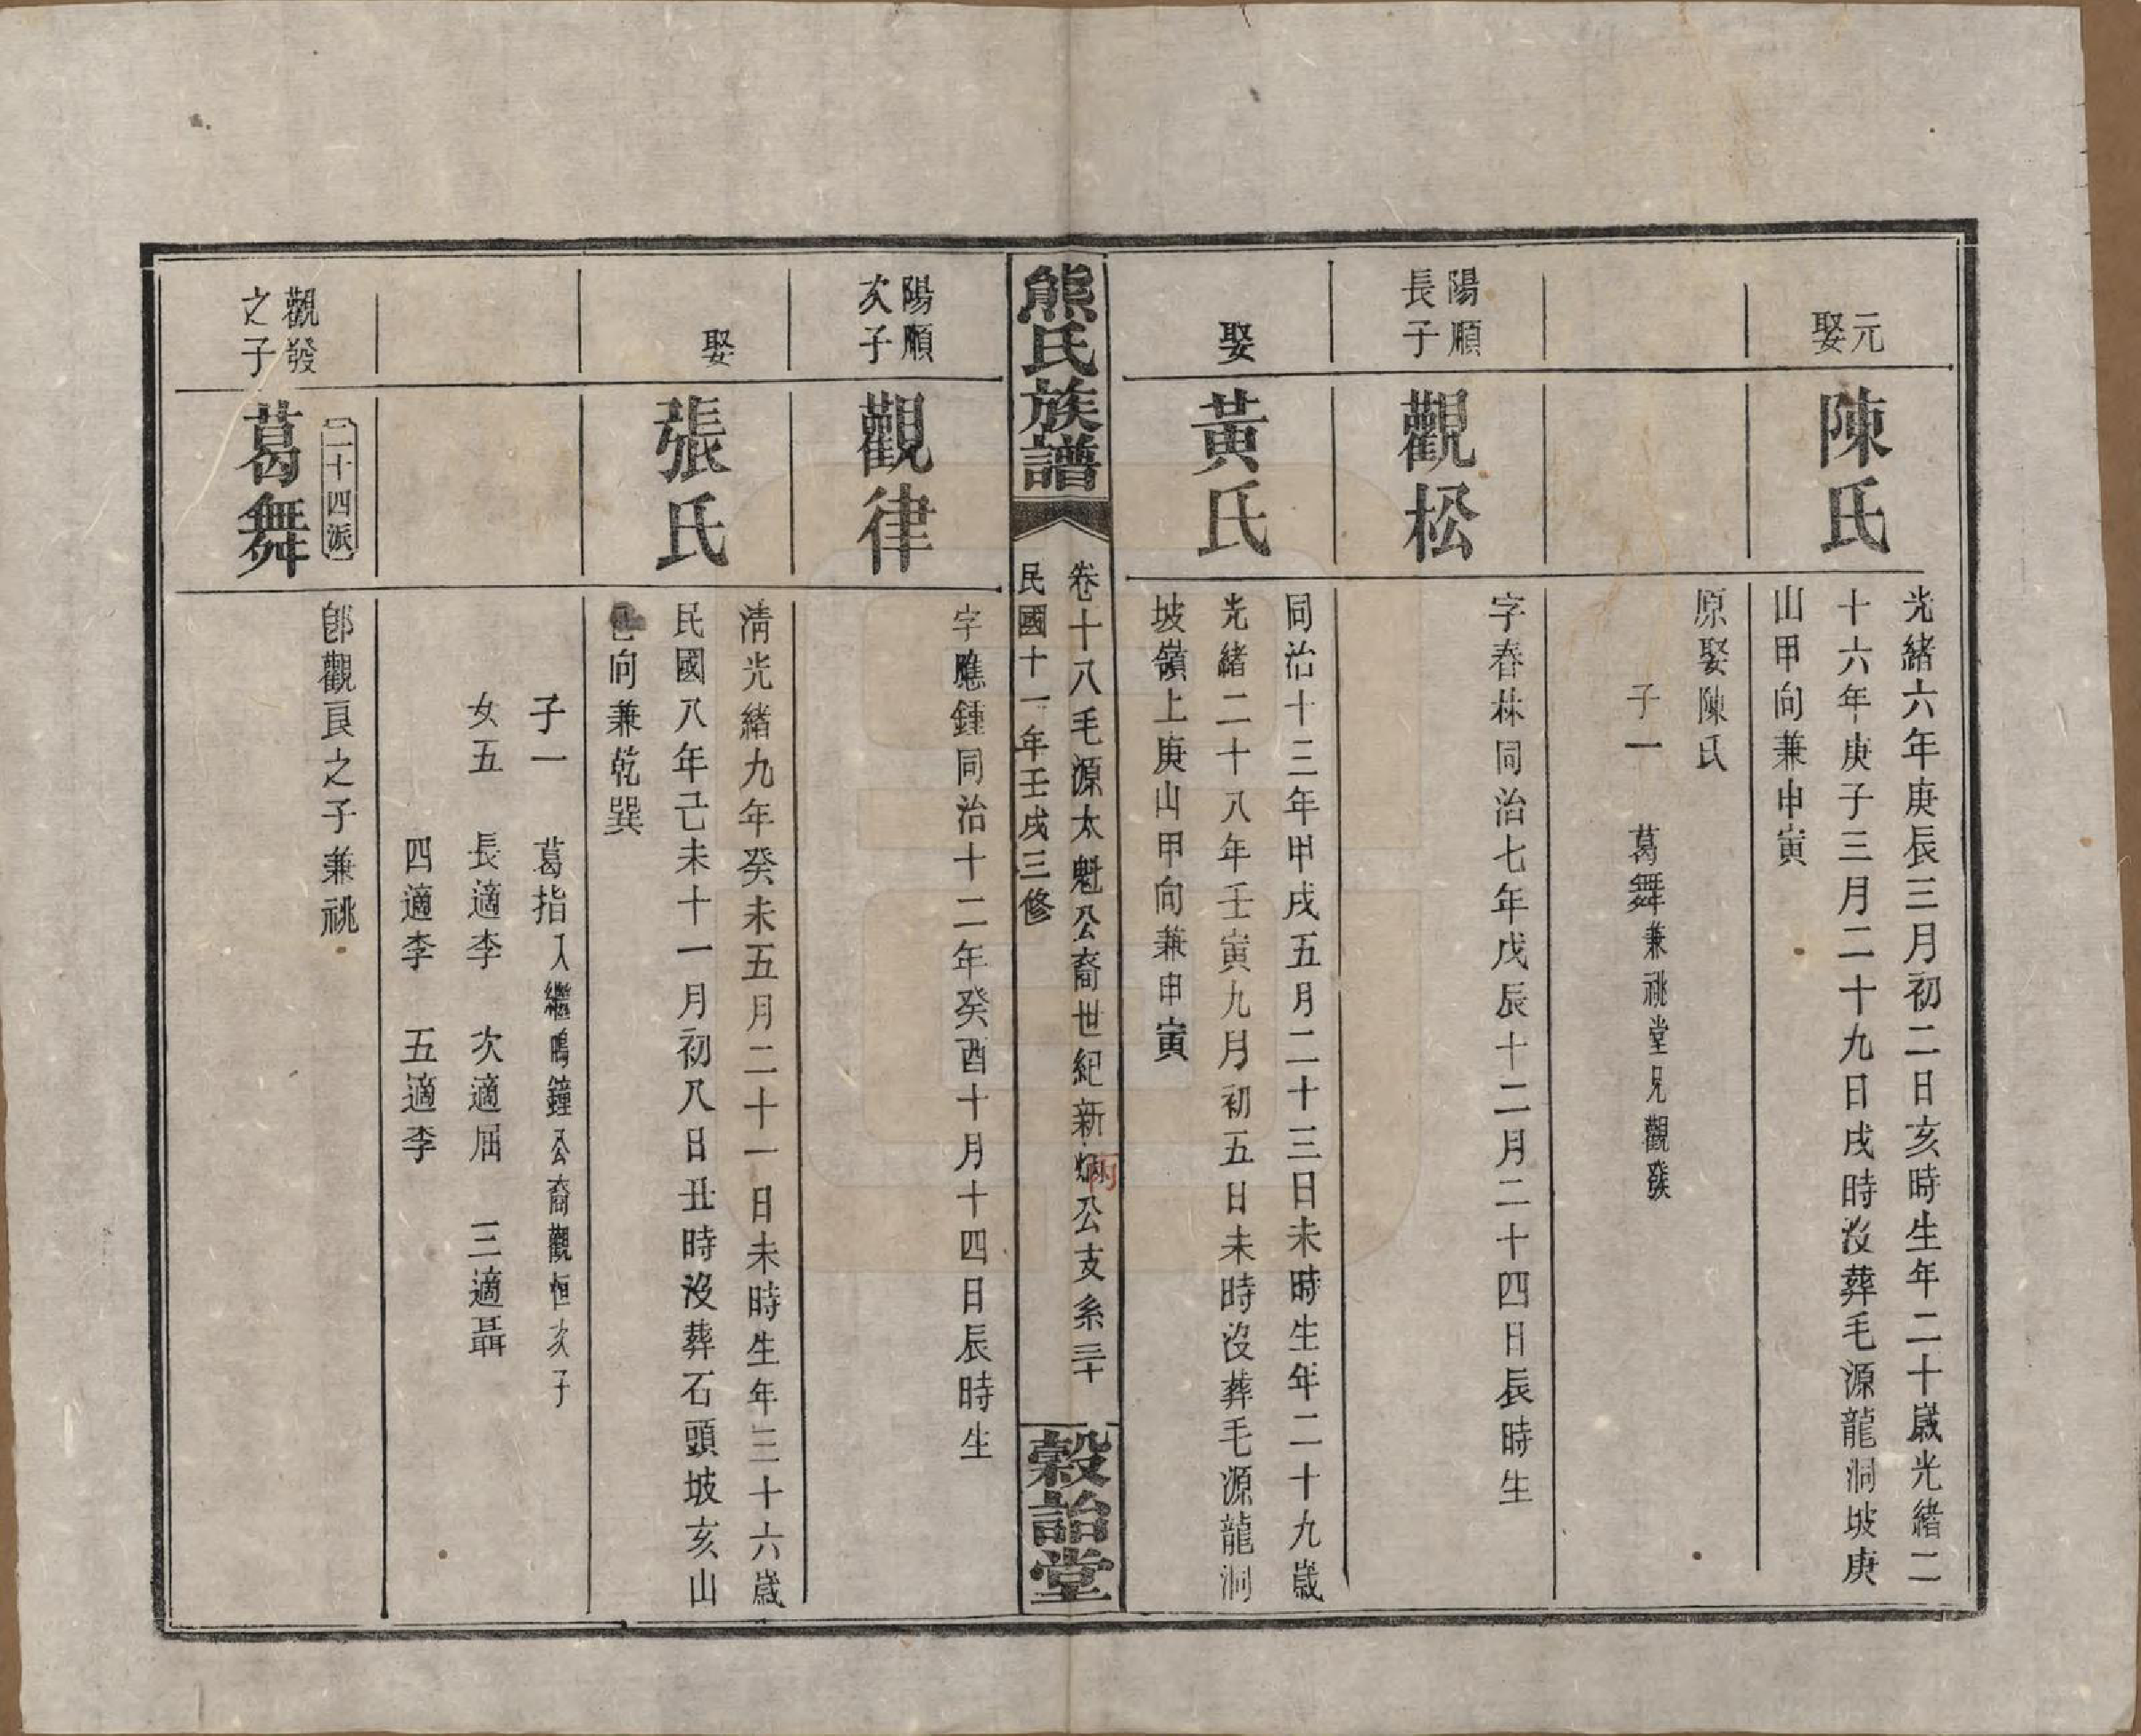 元娶
陳氏
光緒六年庚辰三月初二日亥時生年二十歲光緒二
十六年庚子三月二十九日戌時沒葬毛源龍洞坡庚
山甲向兼申寅
原娶陳氏
子一　葛舞兼祧堂兄觀發
陽順
長子
觀松
字春林同治七年戊辰十二月二十四日辰時生
娶
黃氏
同治十三年甲戌五月二十三日未時生年二十九歲
光緒二十八年壬寅九月初五日未時沒葬毛源龍洞
坡嶺上庚山甲向兼申寅
熊氏族譜
卷十八毛源太魁公裔世紀新炳公支系三十
民國十一年壬戌三修
穀詒堂
陽順
次子
觀律
字應鍾同治十二年癸酉十月十四日辰時生
娶
張氏
清光緒九年癸未五月二十一日未時生年三十六歲
民國八年己未十一月初八日丑時沒葬石頭坡亥山
巳向兼乾巽
子一　葛指入繼鳴鐘公裔觀恒次子
女五　長適李　次適屈　三適聶
四適李　五適李
二十四派
觀發
之子
葛舞
卽觀良之子兼祧